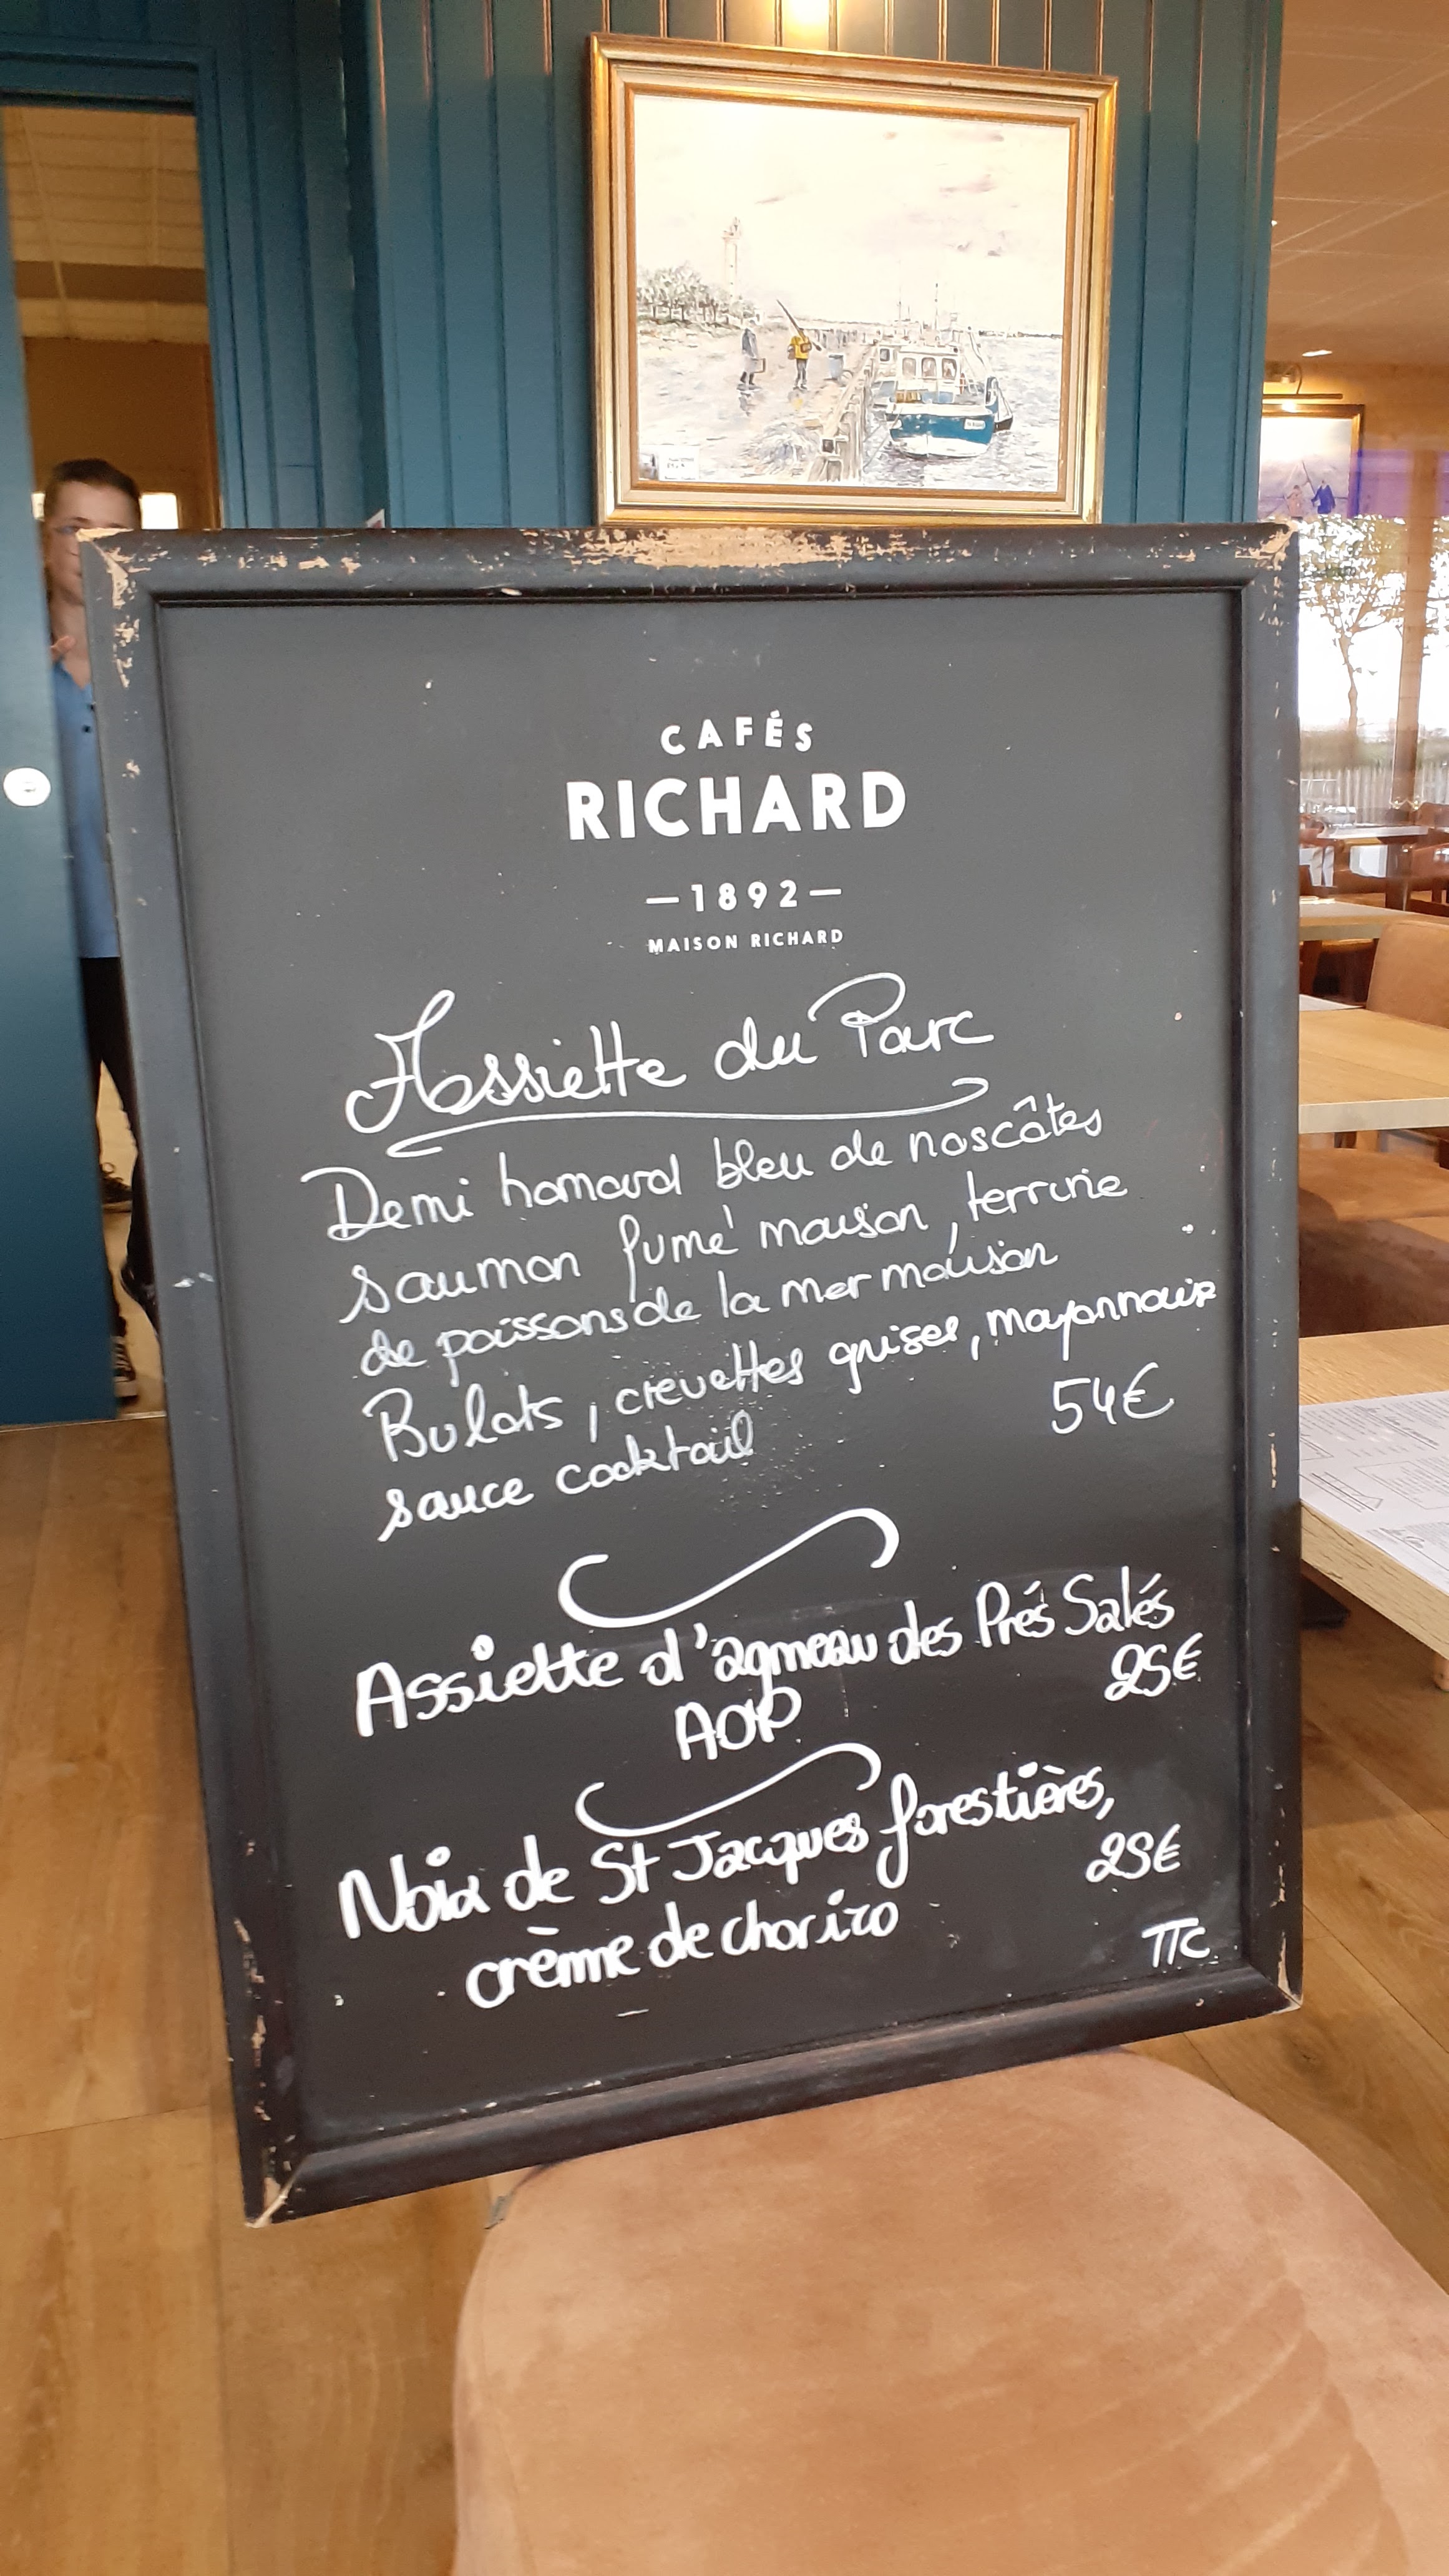 CAFÉS
RICHARD
—1892—
MAISON RICHARD
Assiette du Parc
Demi homard bleu de nos côtes
saumon fumé maison, terrine
de poissons de la mer maison
Bulots, crevettes grises, mayonnaise
sauce cocktail 54€
Assiette d'agneau des Prés Salés
25€
AOP
Noix de St Jacques forestières,
25€
crème de chorizo
TTC